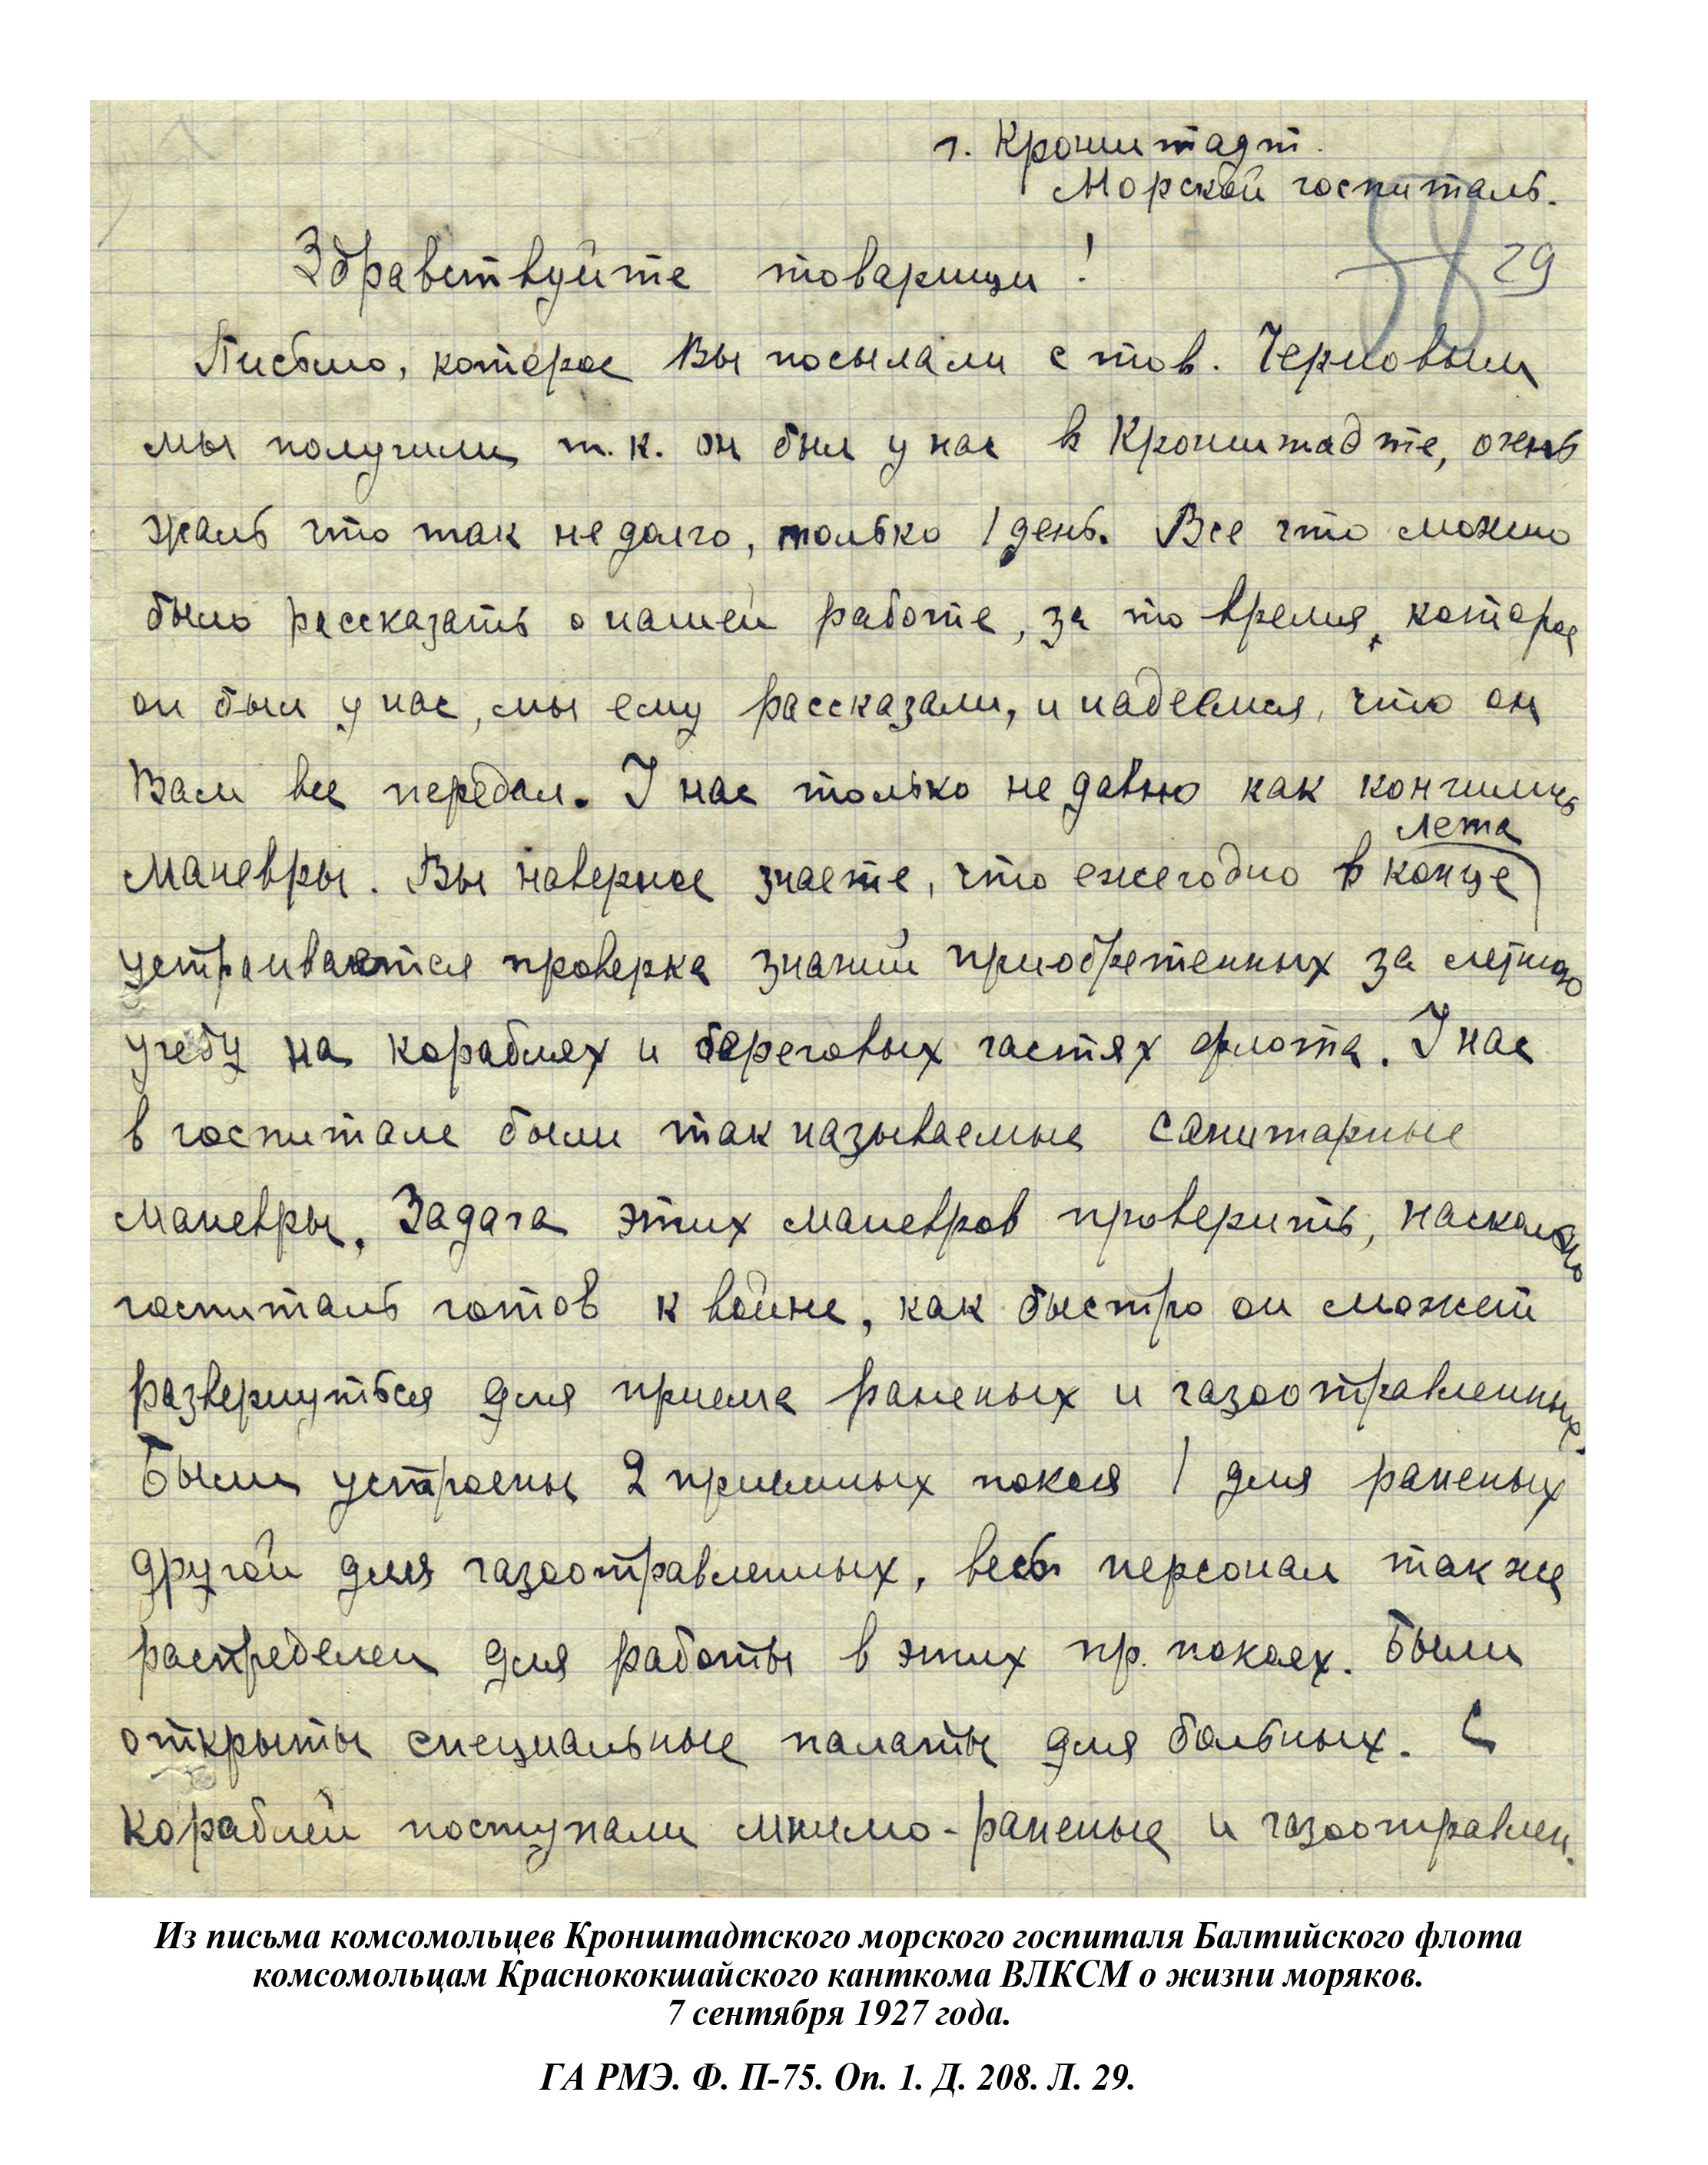 г. Кронштадт.
Морской госпиталь.
29
Здравствуйте товарищи!
Письмо, которое Вы посылали с тов. Черновым
мы получили т.к. он был у нас в Кронштадте, очень
жаль что так недолго, только 1 день. Все что можно
было рассказать о нашей работе, за то время, которое
он был у нас, мы ему рассказали, и надеемся, что он
Вам все передал. У нас только недавно как кончились
лета
маневры. Вы наверное знаете, что ежегодно в конце
устраивается проверка знаний приобретенных за летнюю
учебу на кораблях и береговых частях флота. У нас
в госпитале были так называемые санитарные
маневры. Задача этих маневров проверить, насколько
госпиталь готов к войне, как быстро он может
развернуться для приема раненых и газоотравленных.
Были устроены 2 приемных покоя 1 для раненых
другой для газоотравленных, весь персонал также
распределен для работы в этих пр. покоях. Были
открыты специальные палаты для больных. С
кораблей поступали мнимо-раненые и газоотравлен.
Из письма комсомольцев Кронштадтского морского госпиталя Балтийского флота
комсомольцам Краснококшайского канткома ВЛКСМ о жизни моряков.
7 сентября 1927 года.
ГА РМЭ. Ф. П-75. Оп. 1. Д. 208. Л. 29.